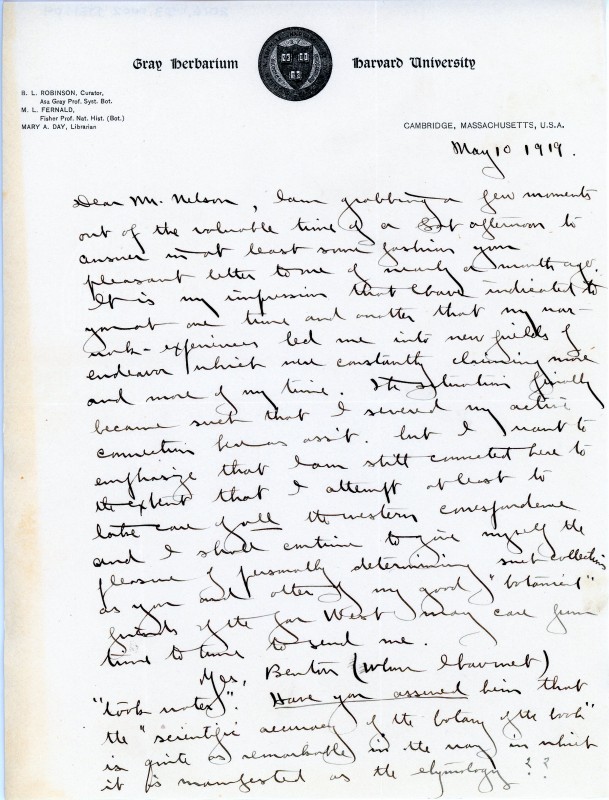 Gray Herbarium Harvard University
B. L. ROBINSON, Curator,
Asa Gray Prof. Syst. Bot.
M. L. FERNALD,
Fisher Prof. Nat. Hist. (Bot.)
MARY A. DAY, Librarian
CAMBRIDGE, MASSACHUSETTS, U.S.A.
May 10 1919.
Dear Mr. Nelson, I am grabbing a few moments
out of the valuable time of a Sat afternoon to
answer in at least some fashion your
pleasant letter to me of nearly a month ago.
It is my impression that I have indicated to
you at one time and another that my war-
work-experiences led me into new fields of
endeavor which were constantly claiming more
and more of my time. The situation finally
became such that I severed my active
connection here as ass't. but I want to
emphasize that I am still connected here to
the extent that I attempt at least to
take care of all the western correspondence
and I shall continue to give myself the
pleasure of personally determining such collections
as you and other of my good "botanical"
friends of the far West may care from
time to time to send me.
Yes, Benton (whom I have met)
"took notes". Have you assured him that
the "scientific accuracy of the botany of the book"
is quite as remarkable in the way in which
it is manifested as the etymology??